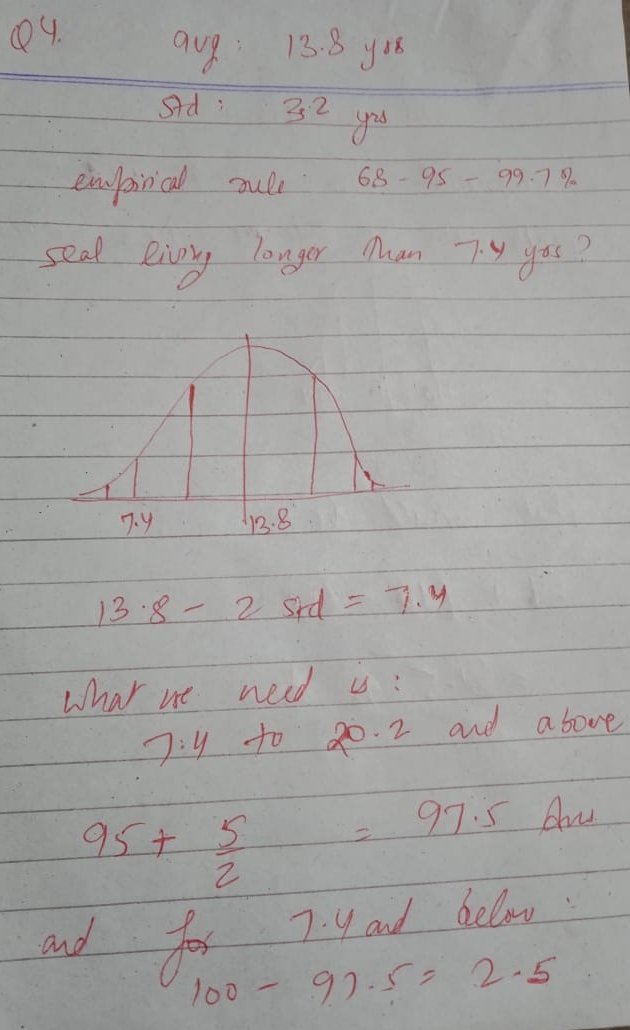 Q4. avg: 13.8 yrs
Std: 3.2 yrs
empirical rule: 68 - 95 - 99.7%
seal living longer than 7.4 yrs?
7.4 13.8
13.8 - 2 std = 7.4
What we need is:
7.4 to 20.2 and above
95 + 5/2 = 97.5 Ans
and for 7.4 and below:
100 - 97.5 = 2.5